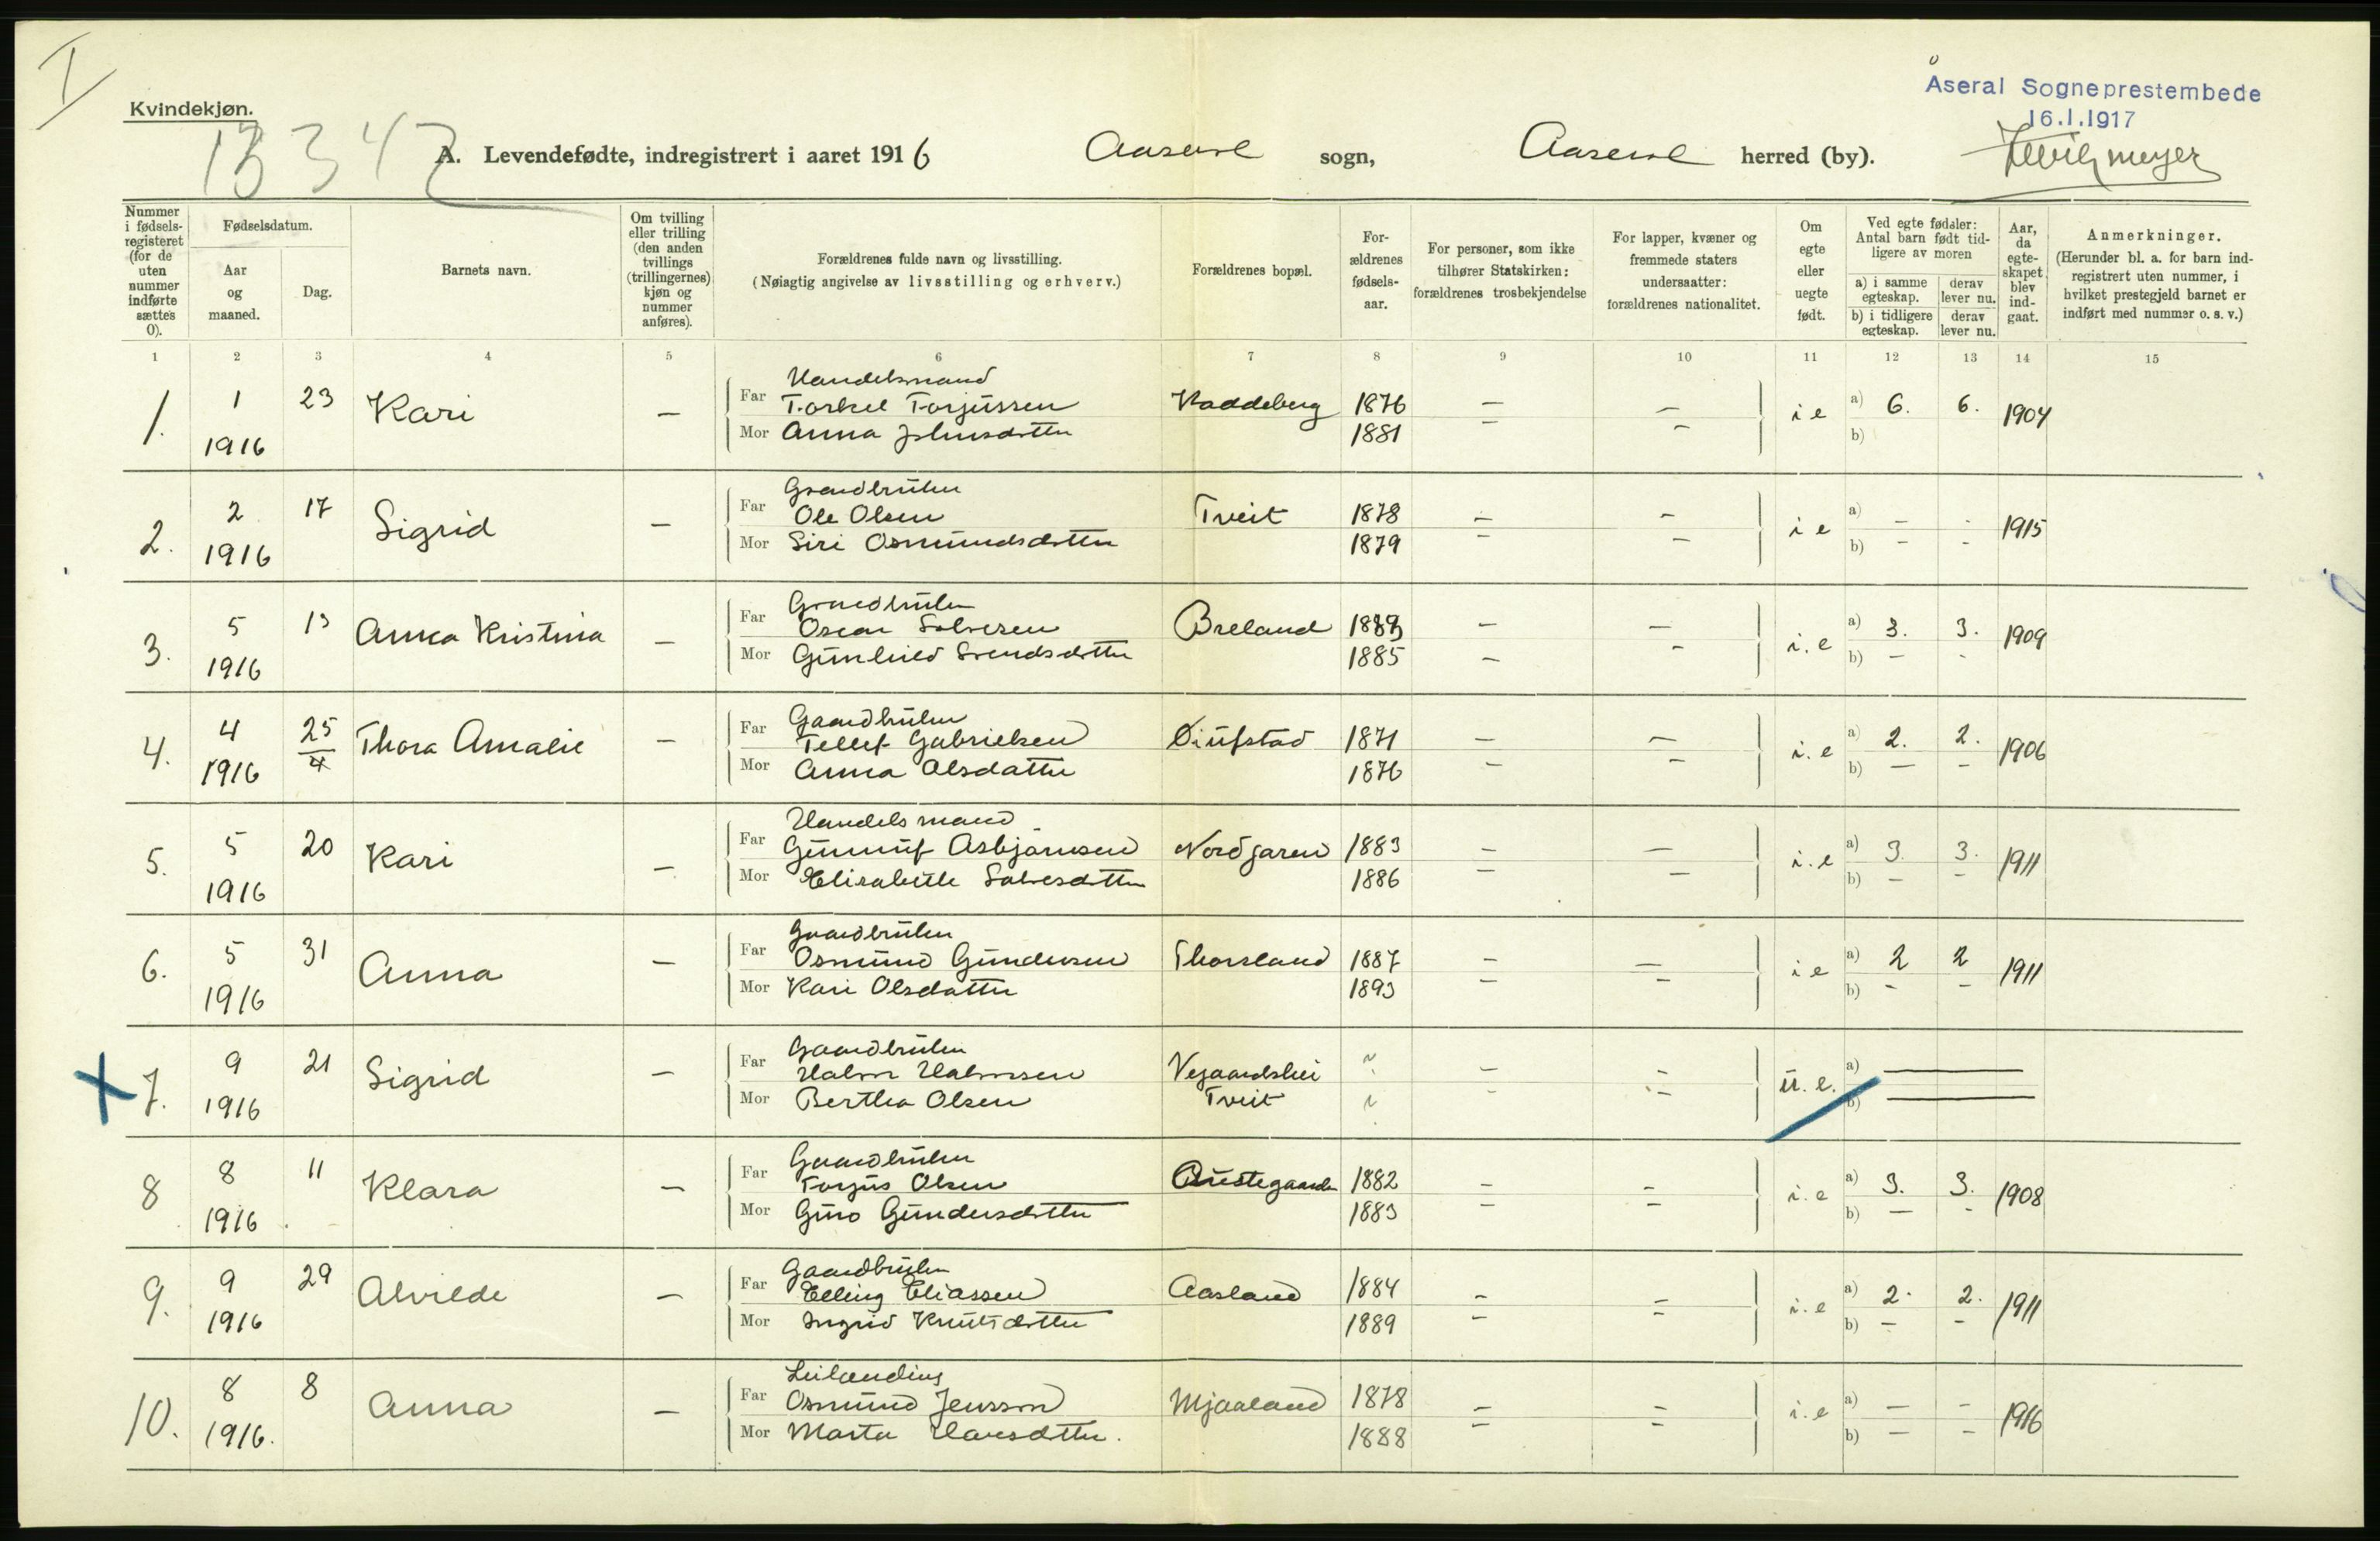 I
Kvindekjøn.
Åseral Sogneprestembede
16.1.1917
A. Levendefødte, indregistrert i aaret 1916 Aaseral sogn, Aaseral herred (by).
Nummer i fødselsregisteret (for de uten nummer indførte sættes 0).
Fødselsdatum.
Aar og maaned.
Dag.
Barnets navn.
Om tvilling eller trilling (den anden tvillings (trillingernes) kjøn og nummer anføres).
Forældrenes fulde navn og livsstilling.
(Nøiagtig angivelse av livsstilling og erhverv.)
Forældrenes bopæl.
Forældrenes fødselsaar.
For personer, som ikke tilhører Statskirken: forældrenes trosbekjendelse
For lapper, kvæner og fremmede staters undersaatter: forældrenes nationalitet.
Om egte eller uegte født.
Ved egte fødsler: Antal barn født tidligere av moren
a) i samme egteskap. derav lever nu.
b) i tidligere egteskap. derav lever nu.
Aar, da egteskapet blev indgaat.
Anmerkninger.
(Herunder bl. a. for barn indregistrert uten nummer, i hvilket prestegjeld barnet er indført med nummer o. s. v.)
1 2 3 4 5 6 7 8 9 10 11 12 13 14 15
Handelsmand
1. 1 23 Kari — Far Torkel Torjussen Kaddeberg 1876 — — i e a) 6. 6. 1904
1916 Mor Anna Johnsdatter 1881 — — b)
Gaardbruker
2. 2 17 Sigrid — Far Ole Olsen Tveit 1878 — — i e a) — - 1915
1916 Mor Siri Osmundsdatter 1879 — — b) — -
Gaardbruker
3. 5 13 Anna Kristina — Far Oscar Solvesen Breland 1883 — — i. e a) 3. 3. 1909
1916 Mor Gunhild Svendsdatter 1885 — - b) — -
Gaardbruker
4. 4 25/4 Thora Amalie — Far Tellef Gabrielsen 1871 — — i. e a) 2. 2. 1906
1916 Mor Anna Olsdatter 1876 — — b) — —
Handelsmand
5. 5 20 Kari — Far Gunnuf Asbjørnsen Nordgaren 1883 — — i. e a) 3 3. 1911
1916 Mor Elisabeth Solvesdatter 1886 — — b) — —
Gaardbruker
6. 5 31 Anna — Far Osmund Gundersen Thorsland 1887 — — i e a) 2 2 1911
1916 Mor Kari Olsdatter 1893 — — b) - —
Gaardbruker
X 7. 9 21 Sigrid — Far Halvor Halvorsen Vegaardshei ~ — — u. e. a) —
1916 Mor Bertha Olsen Tveit ~ - — b) —
Gaardbruker
8 8 11 Klara — Far Torjus Olsen Austegaarden 1882 — — i. e a) 3. 3. 1908
1916 Mor Guro Gundersdatter 1883 — — b) — -
Gaardbruker
9. 9 29 Alvilde — Far Elling Eliassen Aasland 1884 — — i. e a) 2. 2. 1911
1916 Mor Ingrid Knutsdatter 1889 — — b) — —
Leilænding
10. 8 8 Anna — Far Osmund Jensson Mjaaland 1878 — — i. e a) — — 1916
1916. Mor Marta Hansdatter. 1888 — — b) — —